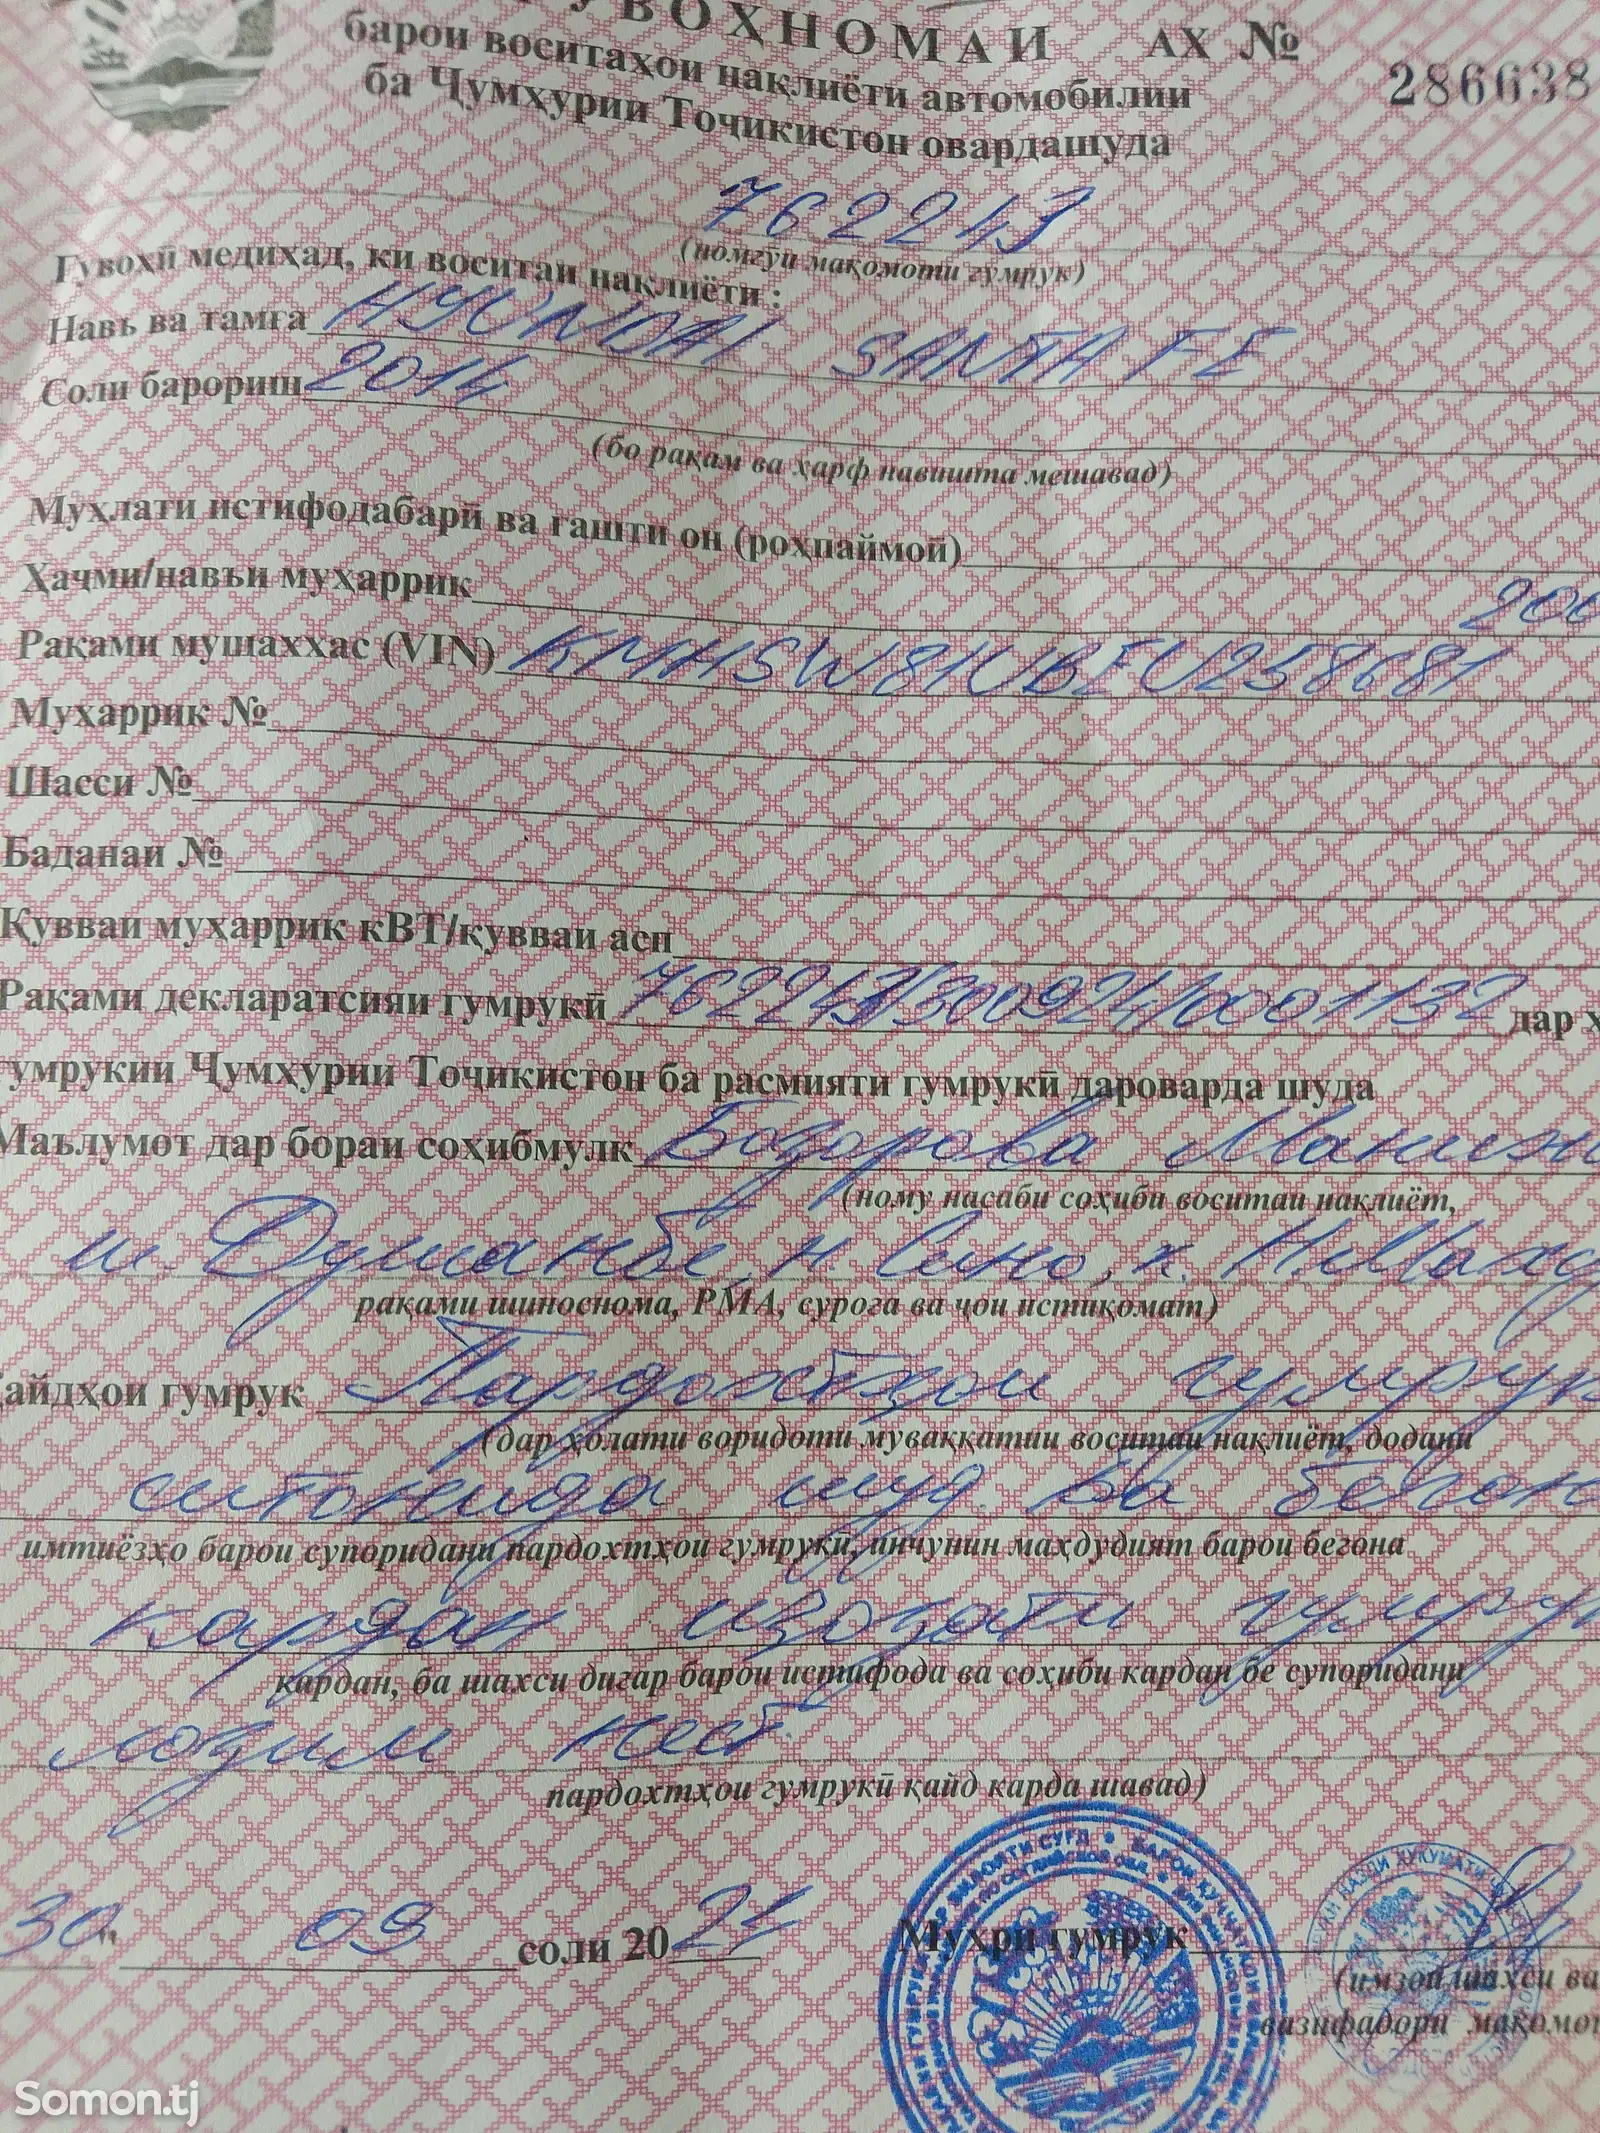 ГУВОҲНОМАИ АХ №
286638
барои воситаҳои нақлиёти автомобилии
ба Ҷумҳурии Тоҷикистон овардашуда
762243
(номгӯи мақомоти гумрук)
Гувоҳӣ медиҳад, ки воситаи нақлиёти :
Навъ ва тамға HYUNDAI SANTA FE
Соли барориш 2014
(бо рақам ва ҳарф навишта мешавад)
Муҳлати истифодабарӣ ва гашти он (роҳпаймоӣ)
Ҳаҷми/навъи муҳаррик 200
Рақами мушаххас (VIN) KMHSW81UBEU258681
Муҳаррик №
Шасси №
Баданаи №
Қувваи муҳаррик кВТ/қувваи асп
Рақами декларатсияи гумрукӣ 762243/300924/0001132 дар ҳ
гумрукии Ҷумҳурии Тоҷикистон ба расмияти гумрукӣ дароварда шуда
Маълумот дар бораи соҳибмулк Бозорова
(ному насаби соҳиби воситаи нақлиёт,
ш. Душанбе, н. Сино, к. Н.Мах
рақами шиноснома, РМА, суроға ва ҷои истиқомат)
Қайдҳои гумрук Пардохтҳои гумрук
(дар ҳолати воридоти муваққатии воситаи нақлиёт, додани
ситонида шуд. Ба бегон
имтиёзҳо барои супоридани пардохтҳои гумрукӣ, инчунин маҳдудият барои бегона
кардан иҷозати гумрук
кардан, ба шахси дигар барои истифода ва соҳиби кардан бе супоридани
лозим нест.
пардохтҳои гумрукӣ қайд карда шавад)
30" 09 соли 2024 Муҳри гумрук
(имзои шахси ва
вазифадори мақомот
Somon.tj